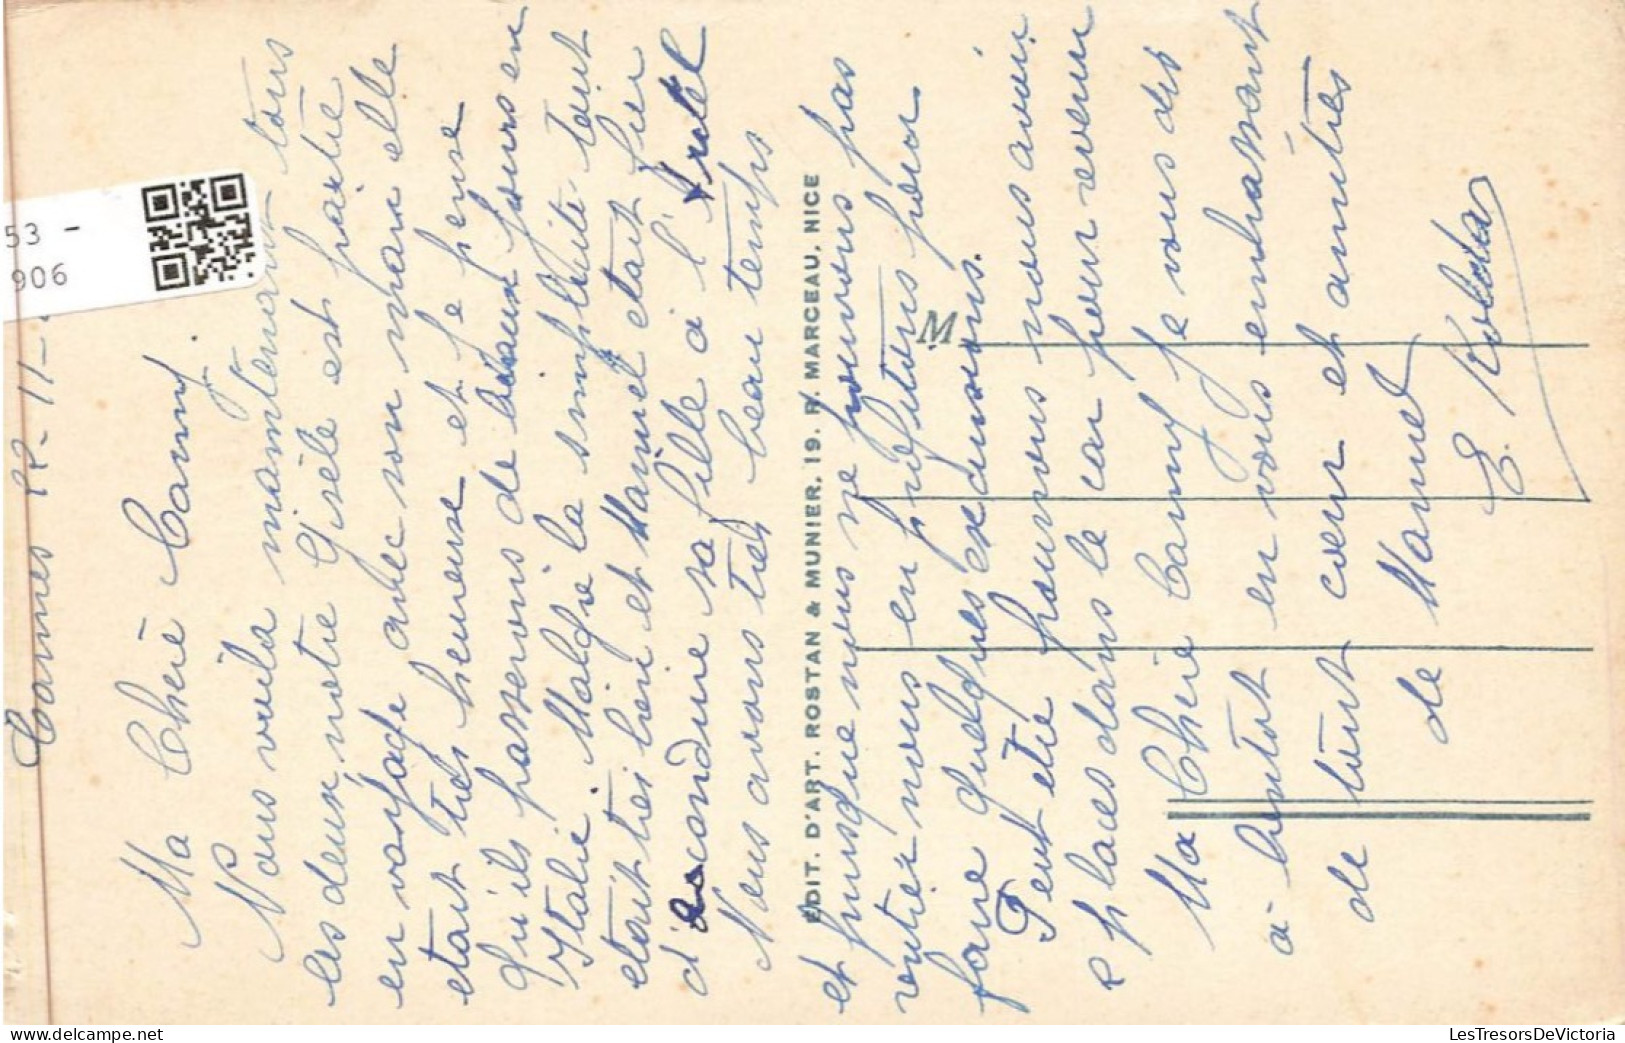 Cannes
Ma Chère Camy.
Nous voila maintenant tous
les deux notre Gisèle est partie
en voyage avec son mari elle
etait très heureuse et je pense
qu'ils passerons de beaux jours en
Italie. Malgré la simplicité tout
etait très bien et Manuel etait fier
de conduire sa fille à l'Autel
Nous avons très beau temps
et puisque nous ne pouvons pas
rentrer nous en profitons pour
faire quelques excursions.
Peut etre pourrons nous avoir
2 places dans le car pour revenir
Ma Chère Camy je vous dis
à bientot en vous embrassant
de tout cœur et amitiés
de Manuel
ÉDIT. D'ART. ROSTAN & MUNIER, 19. R. MARCEAU, NICE
M
53 -
906
LesTresorsDeVictoria
https://www.delcampe.net